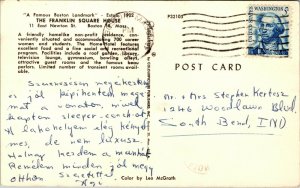 "A Famous Boston Landmark" - Estab. 1902
THE FRANKLIN SQUARE HOUSE
11 East Newton St. Boston 18, Mass.
A friendly homelike non-profit residence, conveniently situated and accommodating 700 career women and students. The Home-Hotel features excellent food and a fine social and recreational program. Facilities include a roof garden, library, television lounge, gymnasium, bowling alleys, attractive guest rooms and the famous beau parlors. Limited number of transient accommodations.
P32105
WASHINGTON
5
POST CARD
Szerencsésen megérkeztem
és jól kipihentem magam
mert a vonaton mivel
kaptam sleeper-coachot
A lakohelyem elég kényel
mes, de nem luxus.
Holnap kezdem a munkát
Remélem minden jól megy
otthon
Agi
Mr. + Mrs Stephen Kertesz
1246 Woodlawn Blvd.
South Bend, IND
Color by Les McGrath